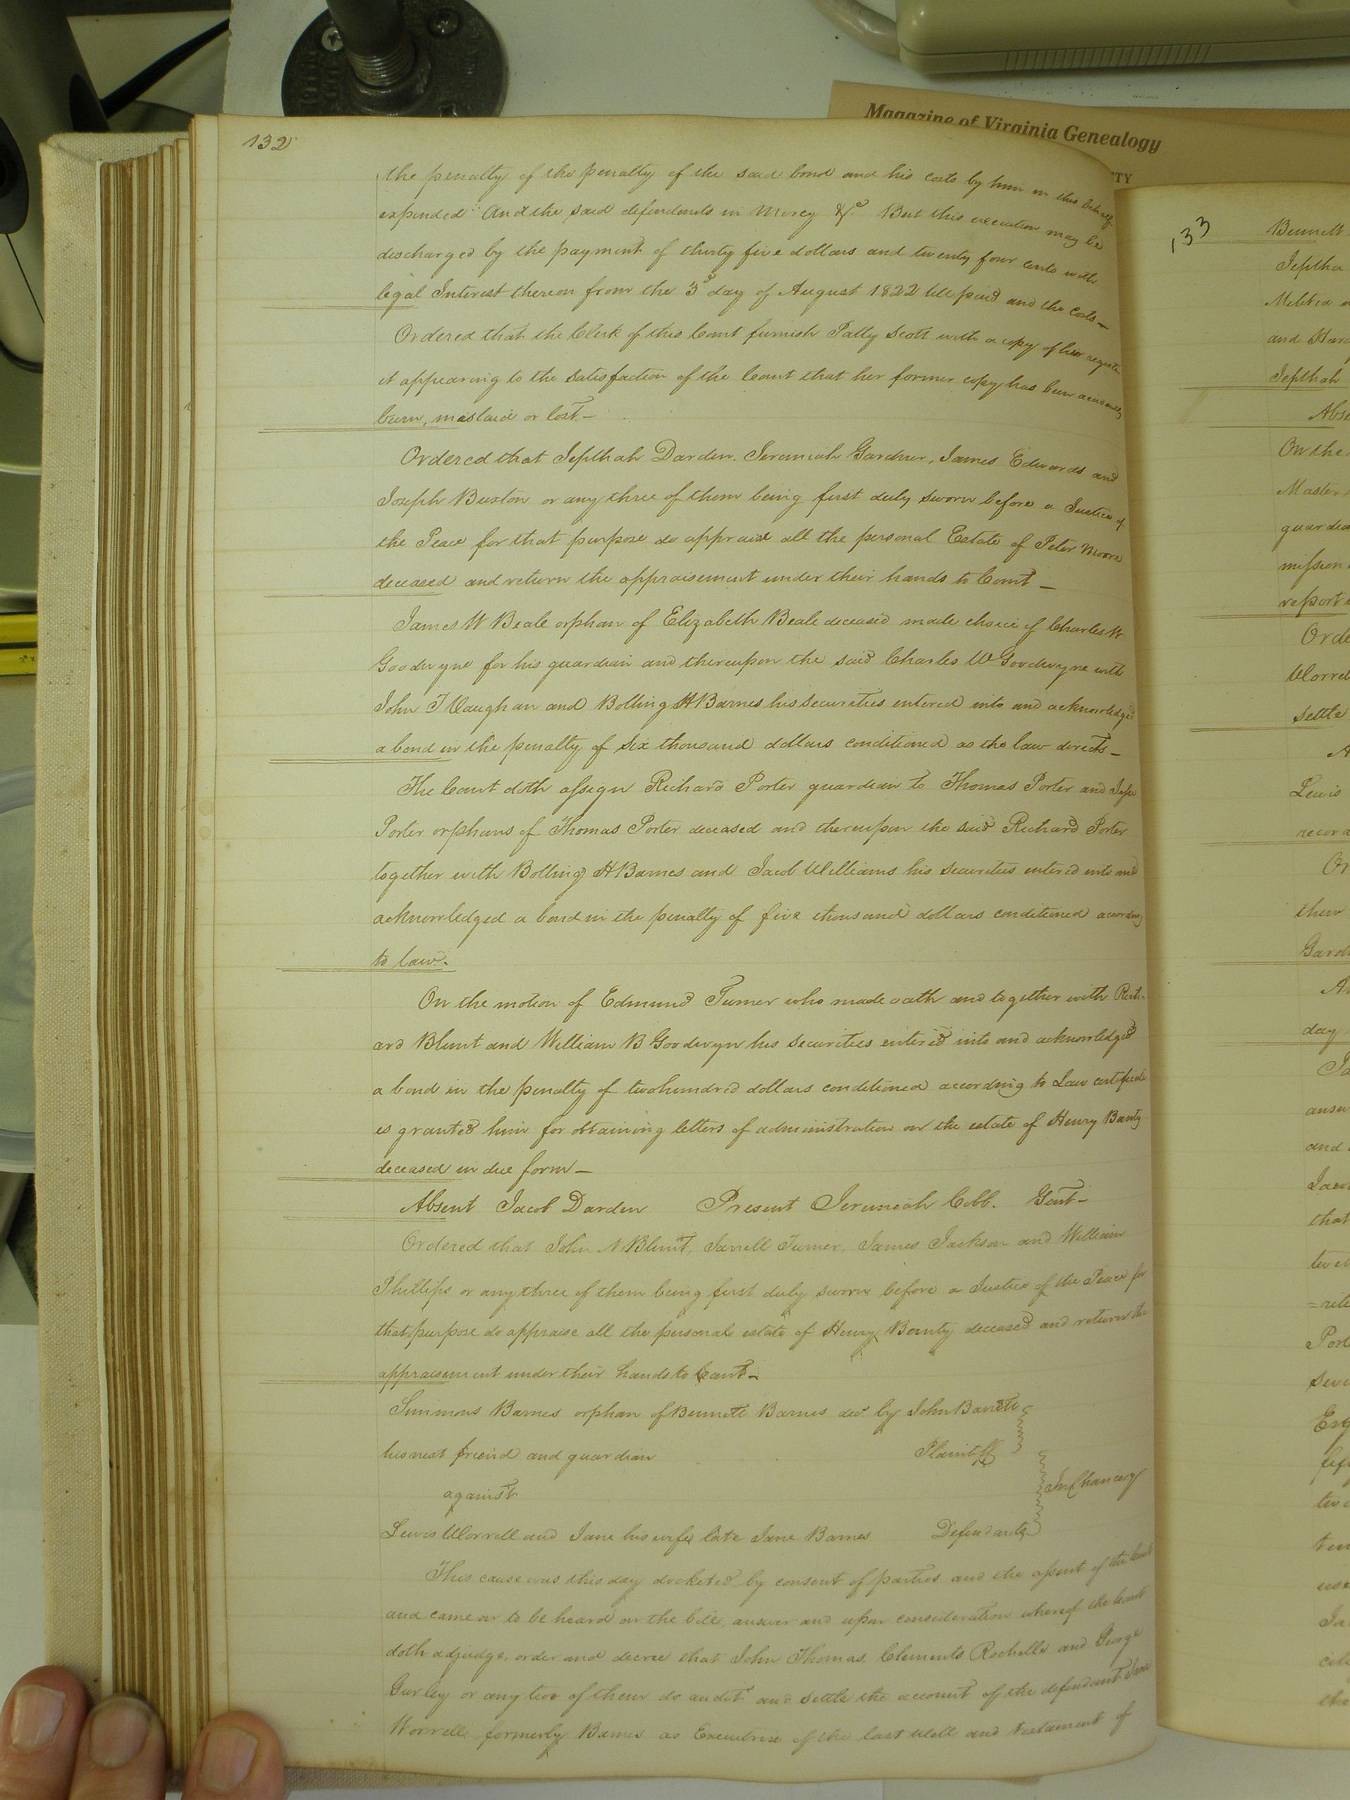 Magazine of Virginia Genealogy
TY
132
the penalty of the penalty of the said bond and his costs by him in this behalf
expended And the said defendants in Mercy &c But this execution may be
discharged by the payment of thirty five dollars and twenty four cents with
legal Interest thereon from the 3d day of August 1822 till paid and the costs—
Ordered that the Clerk of this Court furnish Patty Scott with a copy of her register
it appearing to the satisfaction of the Court that her former copy has been
burn, maslaid or lost—
Ordered that Jepthah Darden. Jeremiah Gardner, James Edwards and
Joseph Buxton or any three of them being first duly sworn before a Justice of
the Peace for that purpose do appraise all the personal Estate of Peter Moore
deceased and return the appraisement under their hands to Court—
James W Beale orphan of Elizabeth Beale deceased made choice of Charles W
Goodwyne for his guardian and thereupon the said Charles W Goodwyne with
John T Vaughan and Bolling H Barnes his securities entered into and acknowledged
a bond in the penalty of six thousand dollars conditioned as the law directs—
The Court doth assign Richard Porter guardian to Thomas Porter and Jesse
Porter orphans of Thomas Porter deceased and thereupon the said Richard Porter
together with Bolling H Barnes and Jacob Williams his securities entered into and
acknowledged a bond in the penalty of five thousand dollars conditioned according
to law.
On the motion of Edmund Turner who made oath and together with Rich-
ard Blunt and William B Goodwyn his securities entered into and acknowledged
a bond in the penalty of two hundred dollars conditioned according to Law certificate
is granted him for obtaining letters of administration on the estate of Henry Bounty
deceased in due form—
Absent Jacob Darden Present Jeremiah Cobb. Gent—
Ordered that John N Blunt, Jarrell Turner, James Jackson and William
Phillips or any three of them being first duly sworn before a Justice of the Peace for
that purpose do appraise all the personal estate of Henry Bounty deceased and return the
appraisement under their hands to Court—
Simmons Barnes orphan of Bennett Barnes decd by John Barrett
his next friend and guardian Plaintiff
against In Chancery
Lewis Worrell and Jane his wife late Jane Barnes Defendants
This cause was this day docketed by consent of parties and the assent of the Court
and came on to be heard on the bill, answer and upon consideration whereof the Court
doth adjudge, order and decree that John Thomas, Clements Rochelle and George
Gurley or any two of them do audit and settle the account of the defendant Jane
Worrell, formerly Barnes as Executrix of the last Will and testament of
133
Bennett
Jeptha
Militia
and Har
Jepthah
Abse
On the
Master
guardia
mission
report
Orde
Worrel
settle
Lewis
record
Or
them
Gard
day
answ
and
Jaco
that
Port
seve
Esq